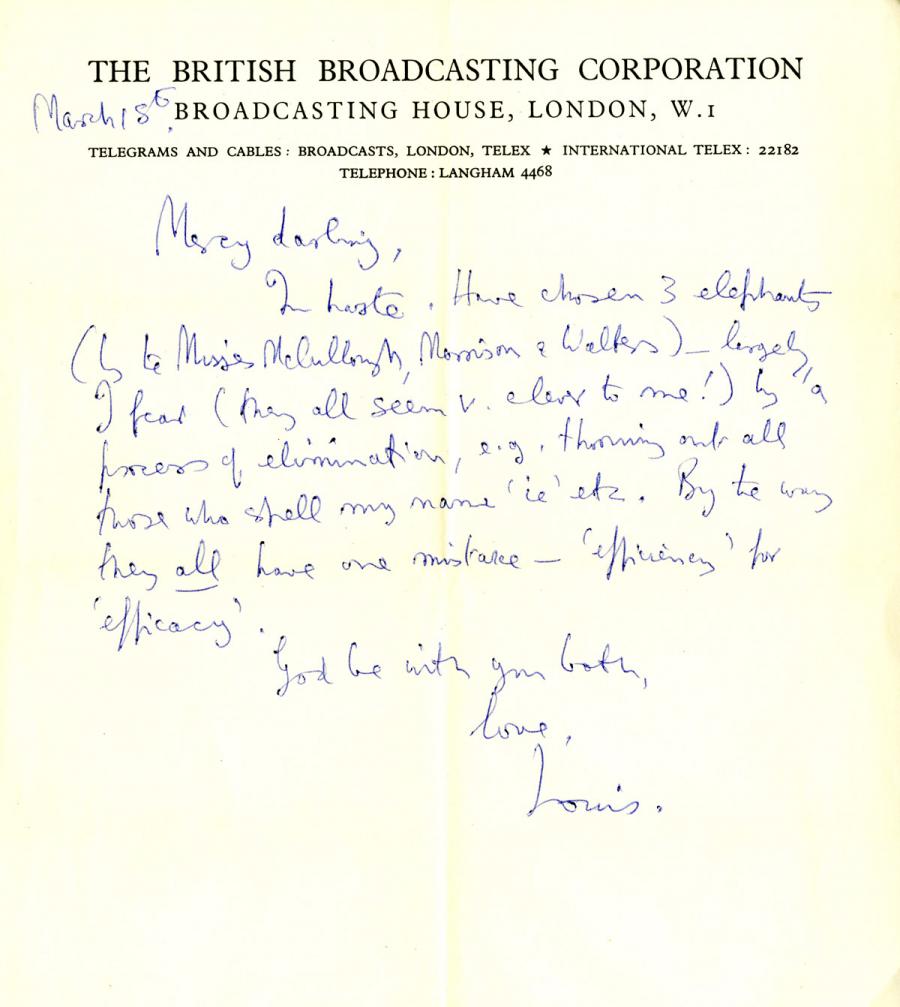 THE BRITISH BROADCASTING CORPORATION
March 18th, BROADCASTING HOUSE, LONDON, W.1
TELEGRAMS AND CABLES: BROADCASTS, LONDON, TELEX ★ INTERNATIONAL TELEX: 22182
TELEPHONE: LANGHAM 4468
Mercy darling,
In haste. Have chosen 3 elephants
(by the Misses McCullough, Morrison & Walters) — largely,
I fear (they all seem v. clever to me!) by a
process of elimination, e.g. throwing out all
those who spell my name 'ie' etc. By the way
they all have one mistake — 'efficiency' for
'efficacy'.
God be with you both,
love,
Louis.